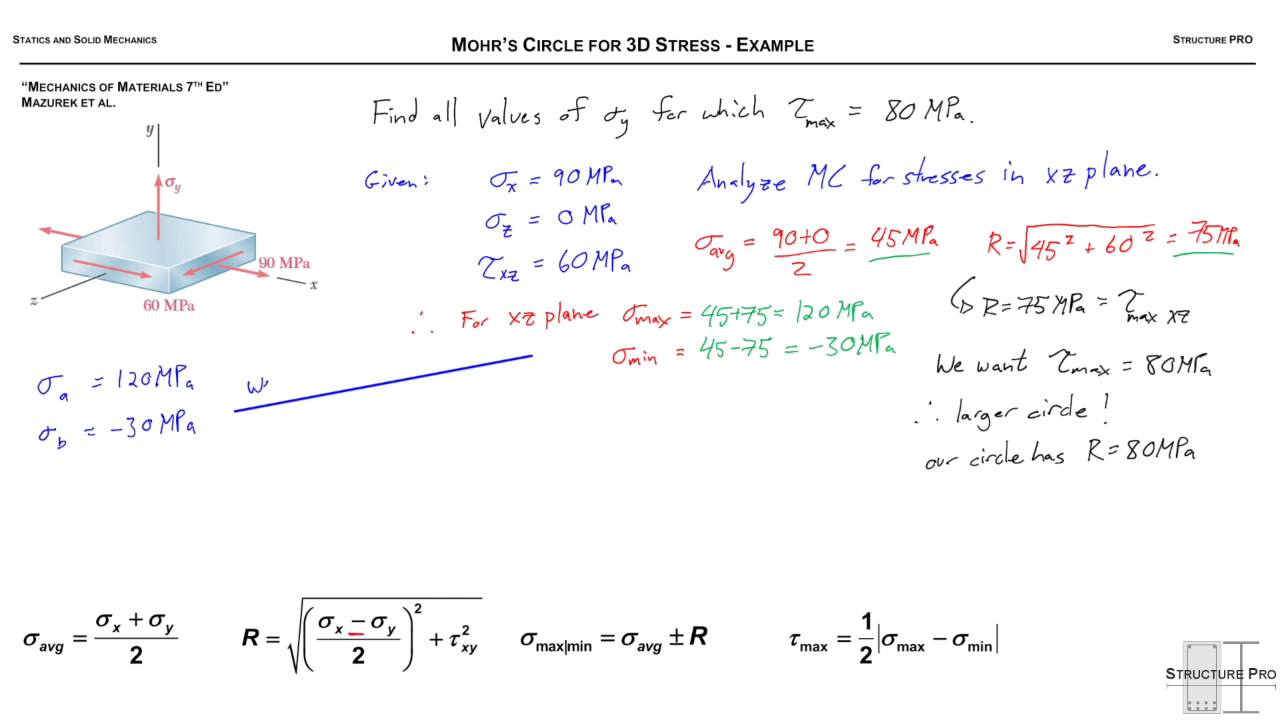 STATICS AND SOLID MECHANICS
MOHR'S CIRCLE FOR 3D STRESS - EXAMPLE
STRUCTURE PRO
"MECHANICS OF MATERIALS 7TH ED"
MAZUREK ET AL.
Find all values of σy for which τmax = 80 MPa.
y
σy
90 MPa
x
z
60 MPa
Given: σx = 90 MPa
σz = 0 MPa
τxz = 60 MPa
Analyze MC for stresses in xz plane.
σavg = 90+0/2 = 45 MPa
R = √45² + 60² = 75 MPa
↳ R = 75 MPa = τmax xz
∴ For xz plane σmax = 45+75 = 120 MPa
σmin = 45-75 = -30 MPa
We want τmax = 80 MPa
∴ larger circle!
our circle has R = 80 MPa
σa = 120 MPa
σb = -30 MPa
w
σavg = σx + σy / 2
R = √((σx − σy) / 2)² + τ²xy
σmax|min = σavg ± R
τmax = 1/2 |σmax − σmin|
STRUCTURE PRO